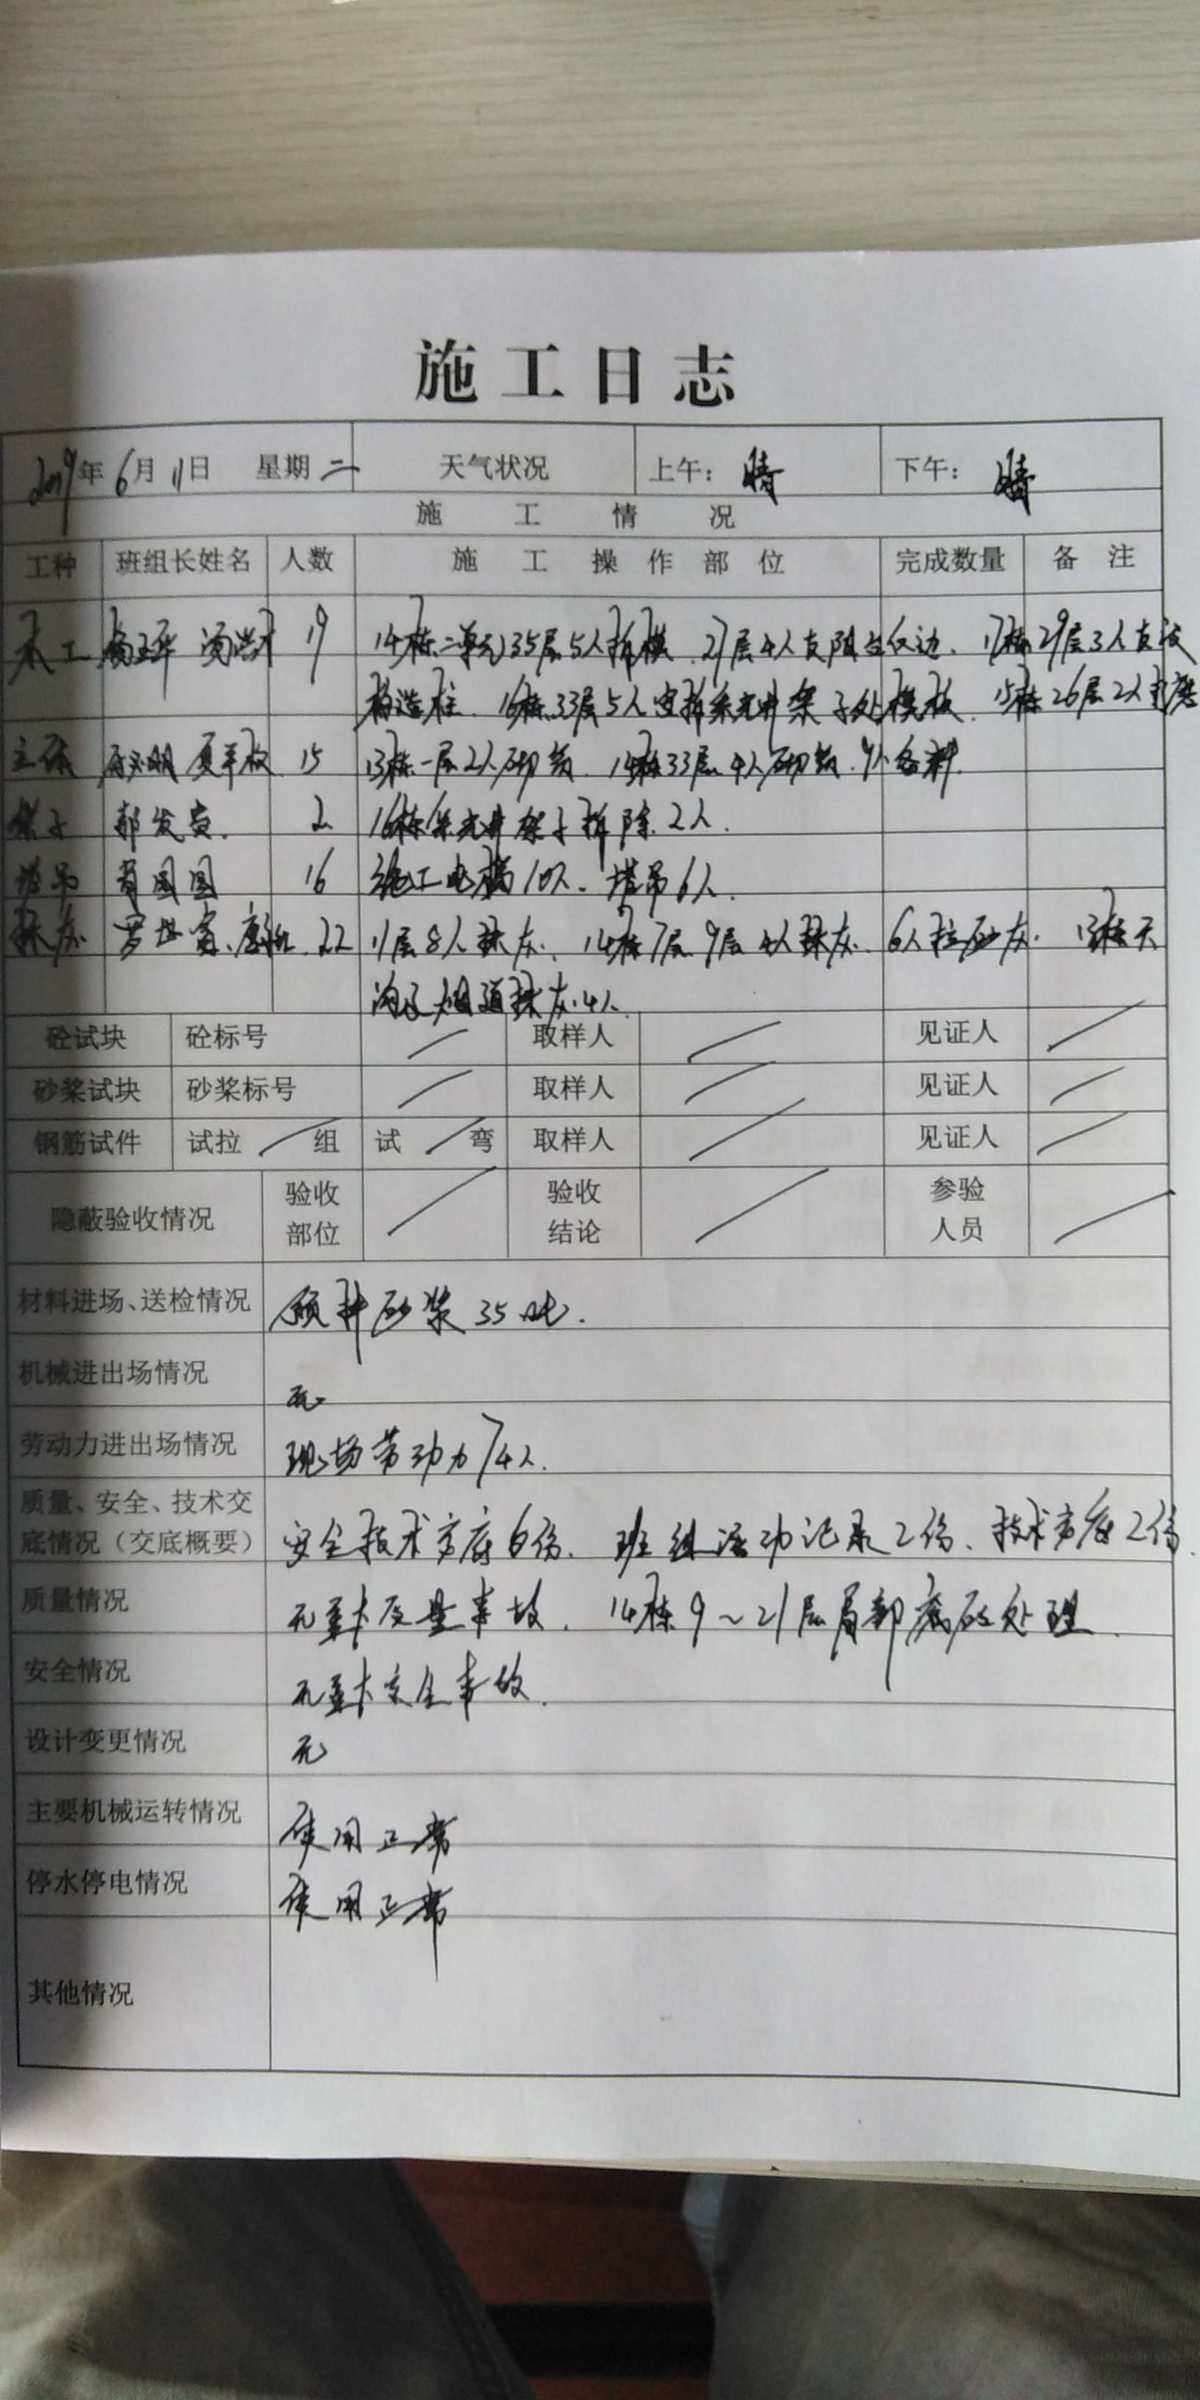 施工日志
2019年6月11日 星期二 天气状况 上午：晴 下午：晴
施工情况
工种 班组长姓名 人数 施工操作部位 完成数量 备注
木工 19 14栋二单元35层5人拆模、27层4人支阳台反边、17栋29层3人支设
构造柱、16栋33层5人 拆采光井架子处模板、15栋26层2人打磨
主体 15 13栋一层2人砌筑、14栋33层4人砌筑、9人备料.
架子 2 16栋采光井架子拆除2人.
塔吊 16 施工电梯10人、塔吊6人.
抹灰 22 11层8人抹灰、14栋7层9层4人抹灰、6人拉砂灰、13栋天
沟及烟道抹灰4人.
砼试块 砼标号 / 取样人 / 见证人 /
砂桨试块 砂桨标号 / 取样人 / 见证人 /
钢筋试件 试拉 / 组 试 / 弯 取样人 / 见证人 /
隐蔽验收情况 验收部位 / 验收结论 / 参验人员 /
材料进场、送检情况 预拌砂浆35吨.
机械进出场情况 无
劳动力进出场情况 现场劳动力74人.
质量、安全、技术交
底情况（交底概要） 安全技术交底6份、班组活动记录2份、技术交底2份.
质量情况 无重大质量事故、14栋9~21层局部 处理.
安全情况 无重大安全事故.
设计变更情况 无
主要机械运转情况 使用正常
停水停电情况 使用正常
其他情况